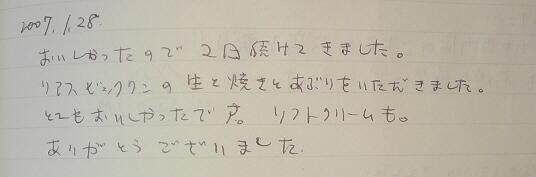 2007.1.28.
おいしかったので 2日続けてきました。
リアスビックワンの 生と焼きとあぶりをいただきました。
とてもおいしかったです。 ソフトクリームも。
ありがとうございました.